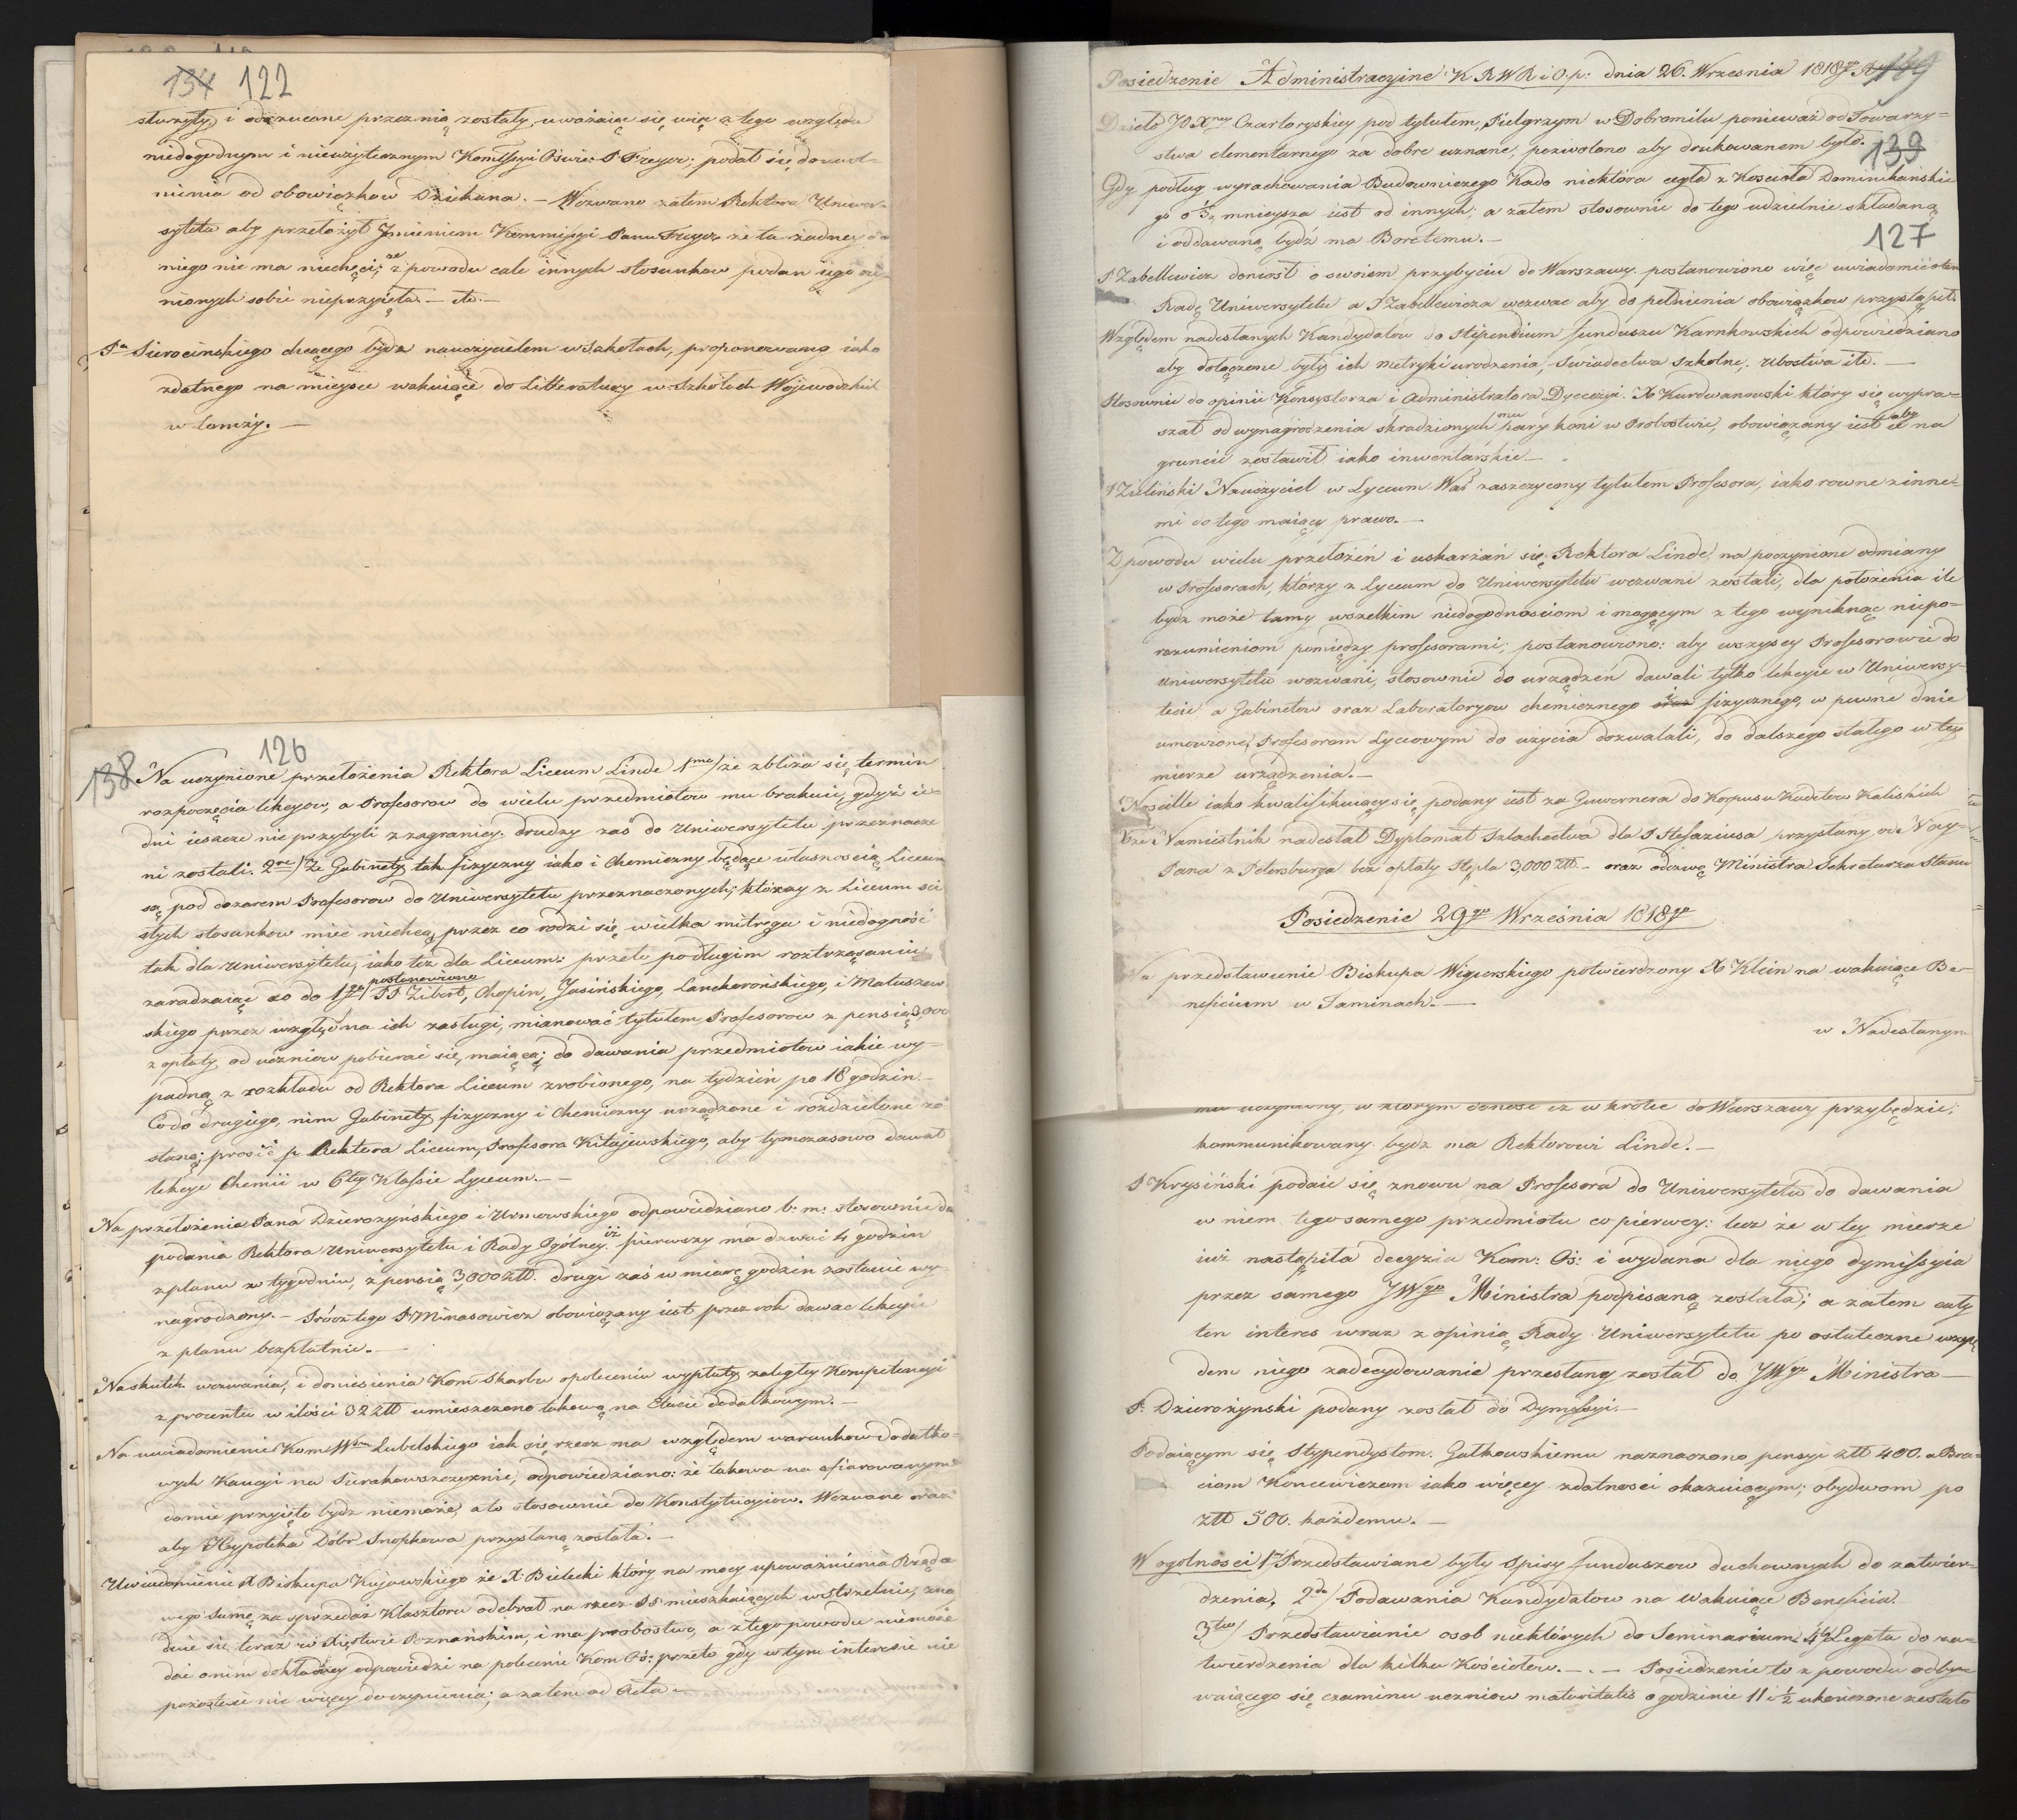 134 122
służyły, i odrzucone przez nią zostały, uważaiąc się więc z tego względu
niedogodnym i nieużytecznym Kommissyi Oświe: P Freyer; podał się do uwol-
nienia od obowiązków Dziekana. — Wezwano zatem Rektora Uniwer-
sytetu aby przełożył Jmieniem Kommissyi Panu Freyer, że ta żadney do
niego nie ma niechęci; że z powodu cale innych stosunkow podan iego
nionych sobie nieprzyięła — etc. —
Pa Sierocińskiego chcącego bydź nauczycielem w szkołach, proponowano iako
zdatnego na mieysce wakuiące do Litteratury w Szkołach Wojewodzkich
w Łomży. —
126
138 Na uczynione przełożenia Rektora Liceum Linde 1mo/ że zbliża się termin
rozpoczęcia lekcyow, a Profesorow do wielu przedmiotow mu brakuie, gdyż ie-
dni ieszcze nie przybyli z zagranicy, drudzy zaś do Uniwersytetu przeznacze
ni zostali. 2do/ Że Gabinety tak fizyczny iako i Chemiczny będące własnością Liceum
są pod dozorem Profesorow do Uniwersytetu przeznaczonych, którzy z Liceum ści
słych stosunków mieć niechcą, przez co rodzi się wielka mitręga i niedogność
tak dla Uniwersytetu, iako też dla Liceum: przeto po długim roztrząsaniu
postanowiono
zaradzaiąc co do 1go/ PP Zibert, Chopin, Jasińskiego, Lanckorońskiego, i Matuszew
skiego przez wzgląd na ich zasługi, mianować tytułem Profesorow z pensią 3,000
z opłaty od uczniow pobierać się maiącą; do dawania przedmiotow iakie wy-
padną z rozkładu od Rektora Liceum zrobionego, na tydzień po 18 godzin —
Co do drugiego, nim Gabinety fizyczny i Chemiczny urządzone i rozdzielone zo
staną; prosić p Rektora Liceum, Profesora Kitajewskiego, aby tymczasowo dawał
lekcye Chemii w 6tey Klassie Lyceum. — —
Na przełożenia Pana Dzierożyńskiego i Urmowskiego odpowiedziano b: m: stosownie do
podania Rektora Uniwersytetu i Rady Ogólney iż pierwszy ma dawać 4 godzin
z planu w tygodniu, z pensią 3,000 złł. drugi zaś w miarę godzin zostanie wy-
nagrodzony. — Prócz tego P Minasowicz obowiązany iest przez rok dawać lekcyie
z planu bezpłatnie. —
Na skutek wezwania, i doniesienia Kom Skarbu o poleceniu wypłaty zaległey Kompetencyi
z procentu w ilości 32 złł umieszczono takową na Etacie dodatkowym. —
Na uwiadomienie Kom Wdztwa Lubelskiego iak się rzecz ma względem warunkow dodatko-
wych Kaucyi na Sierakowszczyznie, odpowiedziano: że takowa na ofiarowanym
domie przyięta bydz niemoże, a to stosownie do Konstytucyiow. Wezwano oraz
aby Hypoteka Dobr Snopkowa przysłaną została. —
Uwiadomienie X Biskupa Kujawskiego że X Bielecki który na mocy upoważnienia Rządo
wego Sumę za sprzedaż Klasztoru odebrał na rzecz PP mieszkaiących w Strzelnie, znay
duie się teraz w Xięstwie Poznańskim, i ma probostwo, a z tego powodu niemoże
dać onim dokładney odpowiedzi na polecenie Kom Oś: przeto gdy w tym interesie nie
pozostaie nic więcey do czynienia; a zatem ad Acta. —
Posiedzenie Administracyjne K R W R i O. p: dnia 26. Wrzesnia 1818go R. 139
Dzieło JO Xney Czartoryskiey pod tytułem, Pielgrzym w Dobromilu ponieważ od Towarzy-
stwa elementarnego za dobre uznane, pozwolono aby drukowanem było.
139
Gdy podług wyrachowania Budowniczego Kado niektóra cegła z Kościoła Dominikańskie
go o 1/3 mnieysza iest od innych, a zatem stosownie do tego udzielnie składaną
i oddawaną bydź ma Boretemu. —
127
P Zabellewicz doniosł o swoiem przybyciu do Warszawy. postanowiono więc uwiadomić o tem
Radę Uniwersytetu a P Zabellewicza wezwać aby do pełnienia obowiązkow przystąpił.
Względem nadesłanych Kandydatow do Stipendium funduszu Karnkowskich odpowiedziano
aby dołączone były ich metryki urodzenia, świadectwa szkolne, ubostwa itd. —
Stosownie do opinii Konsystorza i Administratora Dyecezyi. X Kurdwanowski który się wypra-
szał od wynagrodzenia skradzionych mu pary koni w Probostwie, obowiązany iest aby na
gruncie zostawił iako inwentarskie. —
P Zieliński Nauczyciel w Lyceum War zaszczycony tytułem Profesora, iako rowne z inne-
mi do tego maiący prawo. —
Z powodu wielu przełożeń i uskarżań się Rektora Linde, na poczynione odmiany
w Profesorach, którzy z Lyceum do Uniwersytetu wezwani zostali, dla położenia ile
bydz może tamy wszelkim niedogodnościom i mogącym z tego wyniknąć niepo-
rozumieniom pomiędzy profesorami; postanowiono: aby wszyscy Profesorowie do
Uniwersytetu wezwani, stosownie do urządzeń dawali tylko lekcyie w Uniwersy-
tecie a Gabinetow oraz Laboratoryow chemicznego i fizycznego, w pewne dnie
umowione, Profesorom Lyceowym do użycia dozwalali, do dalszego stałego w tey
mierze urządzenia. —
P Noseille iako kwalifikuiący się, podany iest za Guwernera do Korpusu Kadetow Kaliskich
Xże Namiestnik nadesłał Dyplomat Szlachectwa dla P Stefaziusa przysłany od Nay-
Pana z Petersburga bez opłaty Stępla 3,000 złł. — oraz odezwę Ministra Sekretarza Stanu
Posiedzenie 29go Września 1818go
Na przedstawienie Biskupa Wigierskiego potwierdzony X Klein na wakuiące Be-
neficium w Jaminach. —
w Nadesłanym
mu uczyniony, w ktorym donosi iż w krotce do Warszawy przybędzie;
kommunikowany bydz ma Rektorowi Linde. —
P Krysiński podaie się znowu na Profesora do Uniwersytetu do dawania
w niem tego samego przedmiotu co pierwey: lecz że w tey mierze
iuż nastąpiła decyzia Kom: Oś: i wydana dla niego dymissyia
przez samego JWgo Ministra podpisaną została; a zatem cały
ten interes wraz z opinią Rady Uniwersytetu po ostateczne wzglę
dem niego zadecydowanie przesłany został do JWgo Ministra —
P. Dzierożynski podany został do Dymissyi. —
Podaiącym się Stypendystom. Gutkowskiemu naznaczono pensyi złł 400. a Bra-
ciom Koncewiczom iako więcey zdatnosci okazuiącym; obydwom po
złł 500. każdemu. —
W ogolnosci 1o Przedstawiane były Spisy funduszow duchownych do zatwier-
dzenia, 2do/ Podawania Kandydatow na wakuiące Beneficia.
3tio/ Przedstawianie osob niektórych do Seminarium 4to Legata do za-
twierdzenia dla kilku Kościołow. — . — Posiedzenie to z powodu odby-
waiącego się examinu uczniow maturitatis o godzinie 11 i 1/2 ukończone zostało